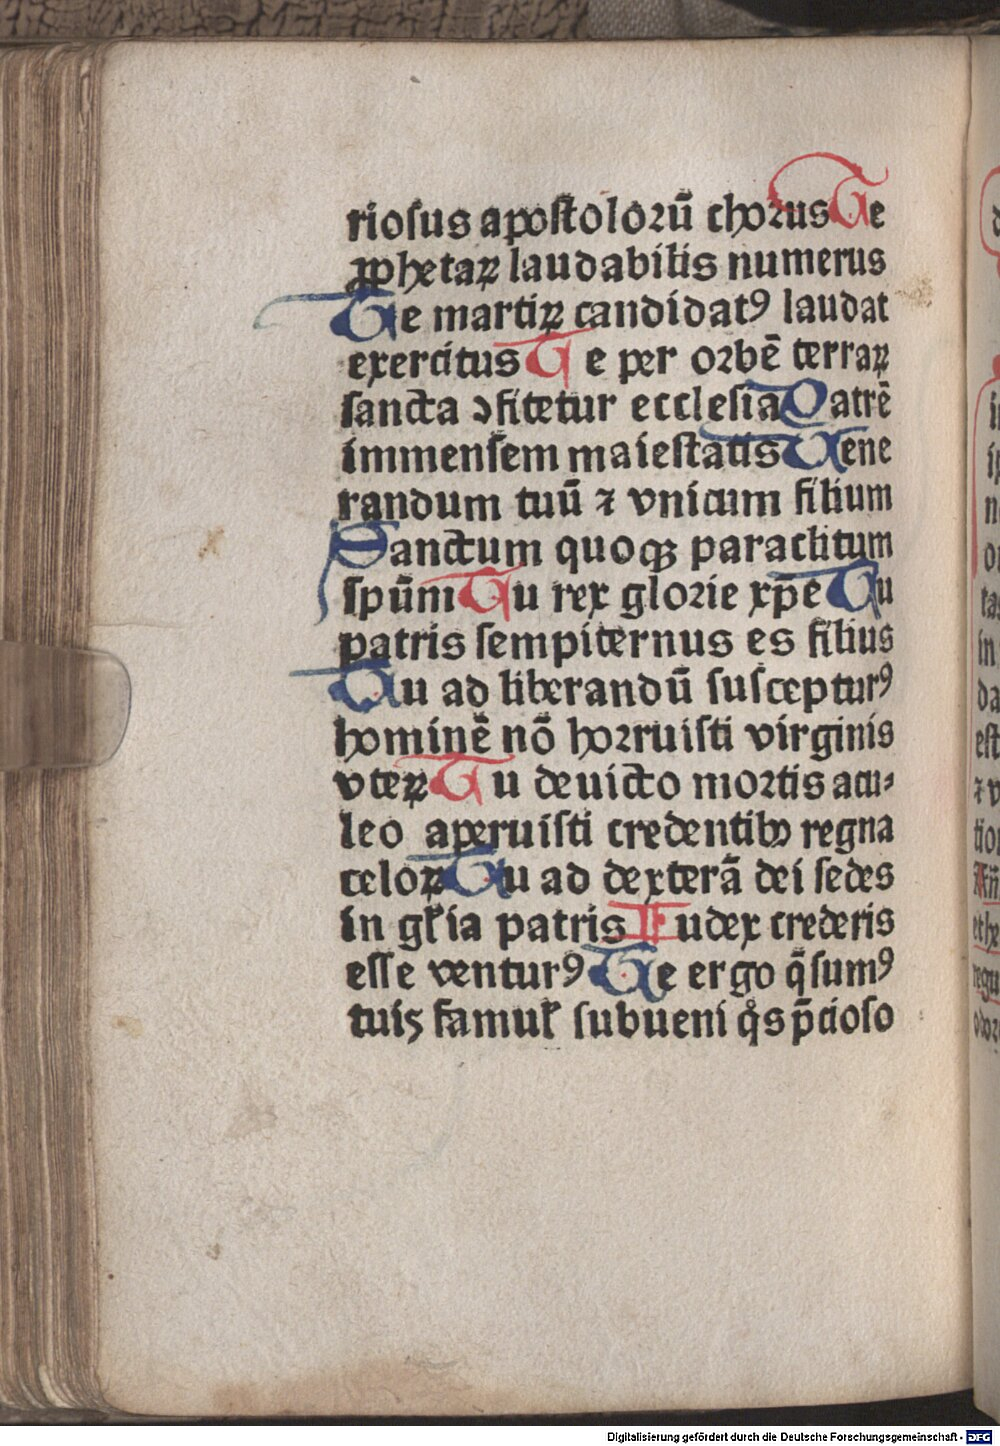 riosus apostolorū chorus Te
ꝓphetaꝝ laudabilis numerus
Te martiꝝ candidatꝰ laudat
exercitus Te per orbē terraꝝ
sancta ↄfitetur ecclesia Patrē
immensem maiestatis Uene
randum tuū ⁊ vnicum filium
Sanctum quoqꝫ paraclitum
spūm Tu rex glorie xp̄e Tu
patris sempiternus es filius
Tu ad liberandū suscepturꝰ
hominē nō horruisti virginis
vteꝝ Tu deuicto mortis acu⸗
leo aperuisti credentibꝫ regna
celoꝝ Tu ad dexterā dei sedes
in gľia patris Iudex crederis
esse venturꝰ Te ergo q̄sumꝰ
tuis famuľ subueni qͦs p̄cioso
Digitalisierung gefördert durch die Deutsche Forschungsgemeinschaft - DFG